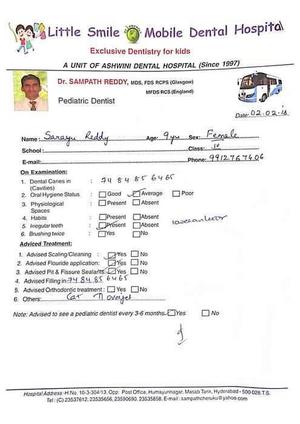 Little Smile Mobile Dental Hospital
Exclusive Dentistry for kids
A UNIT OF ASHWINI DENTAL HOSPITAL (Since 1997)
Dr. SAMPATH REDDY, MDS, FDS RCPS (Glasgow)
MFDS RCS (England)
Pediatric Dentist
Date: 02-02-18
Name: Sarayu Reddy Age: 9yu Sex: Female
School: Class:
E-mail: Phone: 9912767606
On Examination:
1. Dental Caries in : 74 84 85 64 65
(Cavities)
2. Oral Hygiene Status : Good Average Poor
3. Physiological : Present Absent
Spaces
4. Habits : Present Absent
5. Irregular teeth : Present Absent
6. Brushing twice : Yes No
Adviced Treatment:
1. Advised Scaling/Cleaning : Yes No
2. Advised Flouride application: Yes No
3. Advised Pit & Fissure Sealants: Yes No
4. Advised Filling in: 74 84 85 64 65
5. Advised Orthodontic treatment : Yes No
6. Others:
Note: Advised to see a pediatric dentist every 3-6 months. Yes No
Hospital Address - H No. 10-3-304/13, Opp: Post Office, Humayunnagar, Masab Tank, Hyderabad - 500 028 T.S.
Tel : (C) 23537612, 23535656, 23590690, 23535858. E-mail : sampathcheruku@yahoo.com